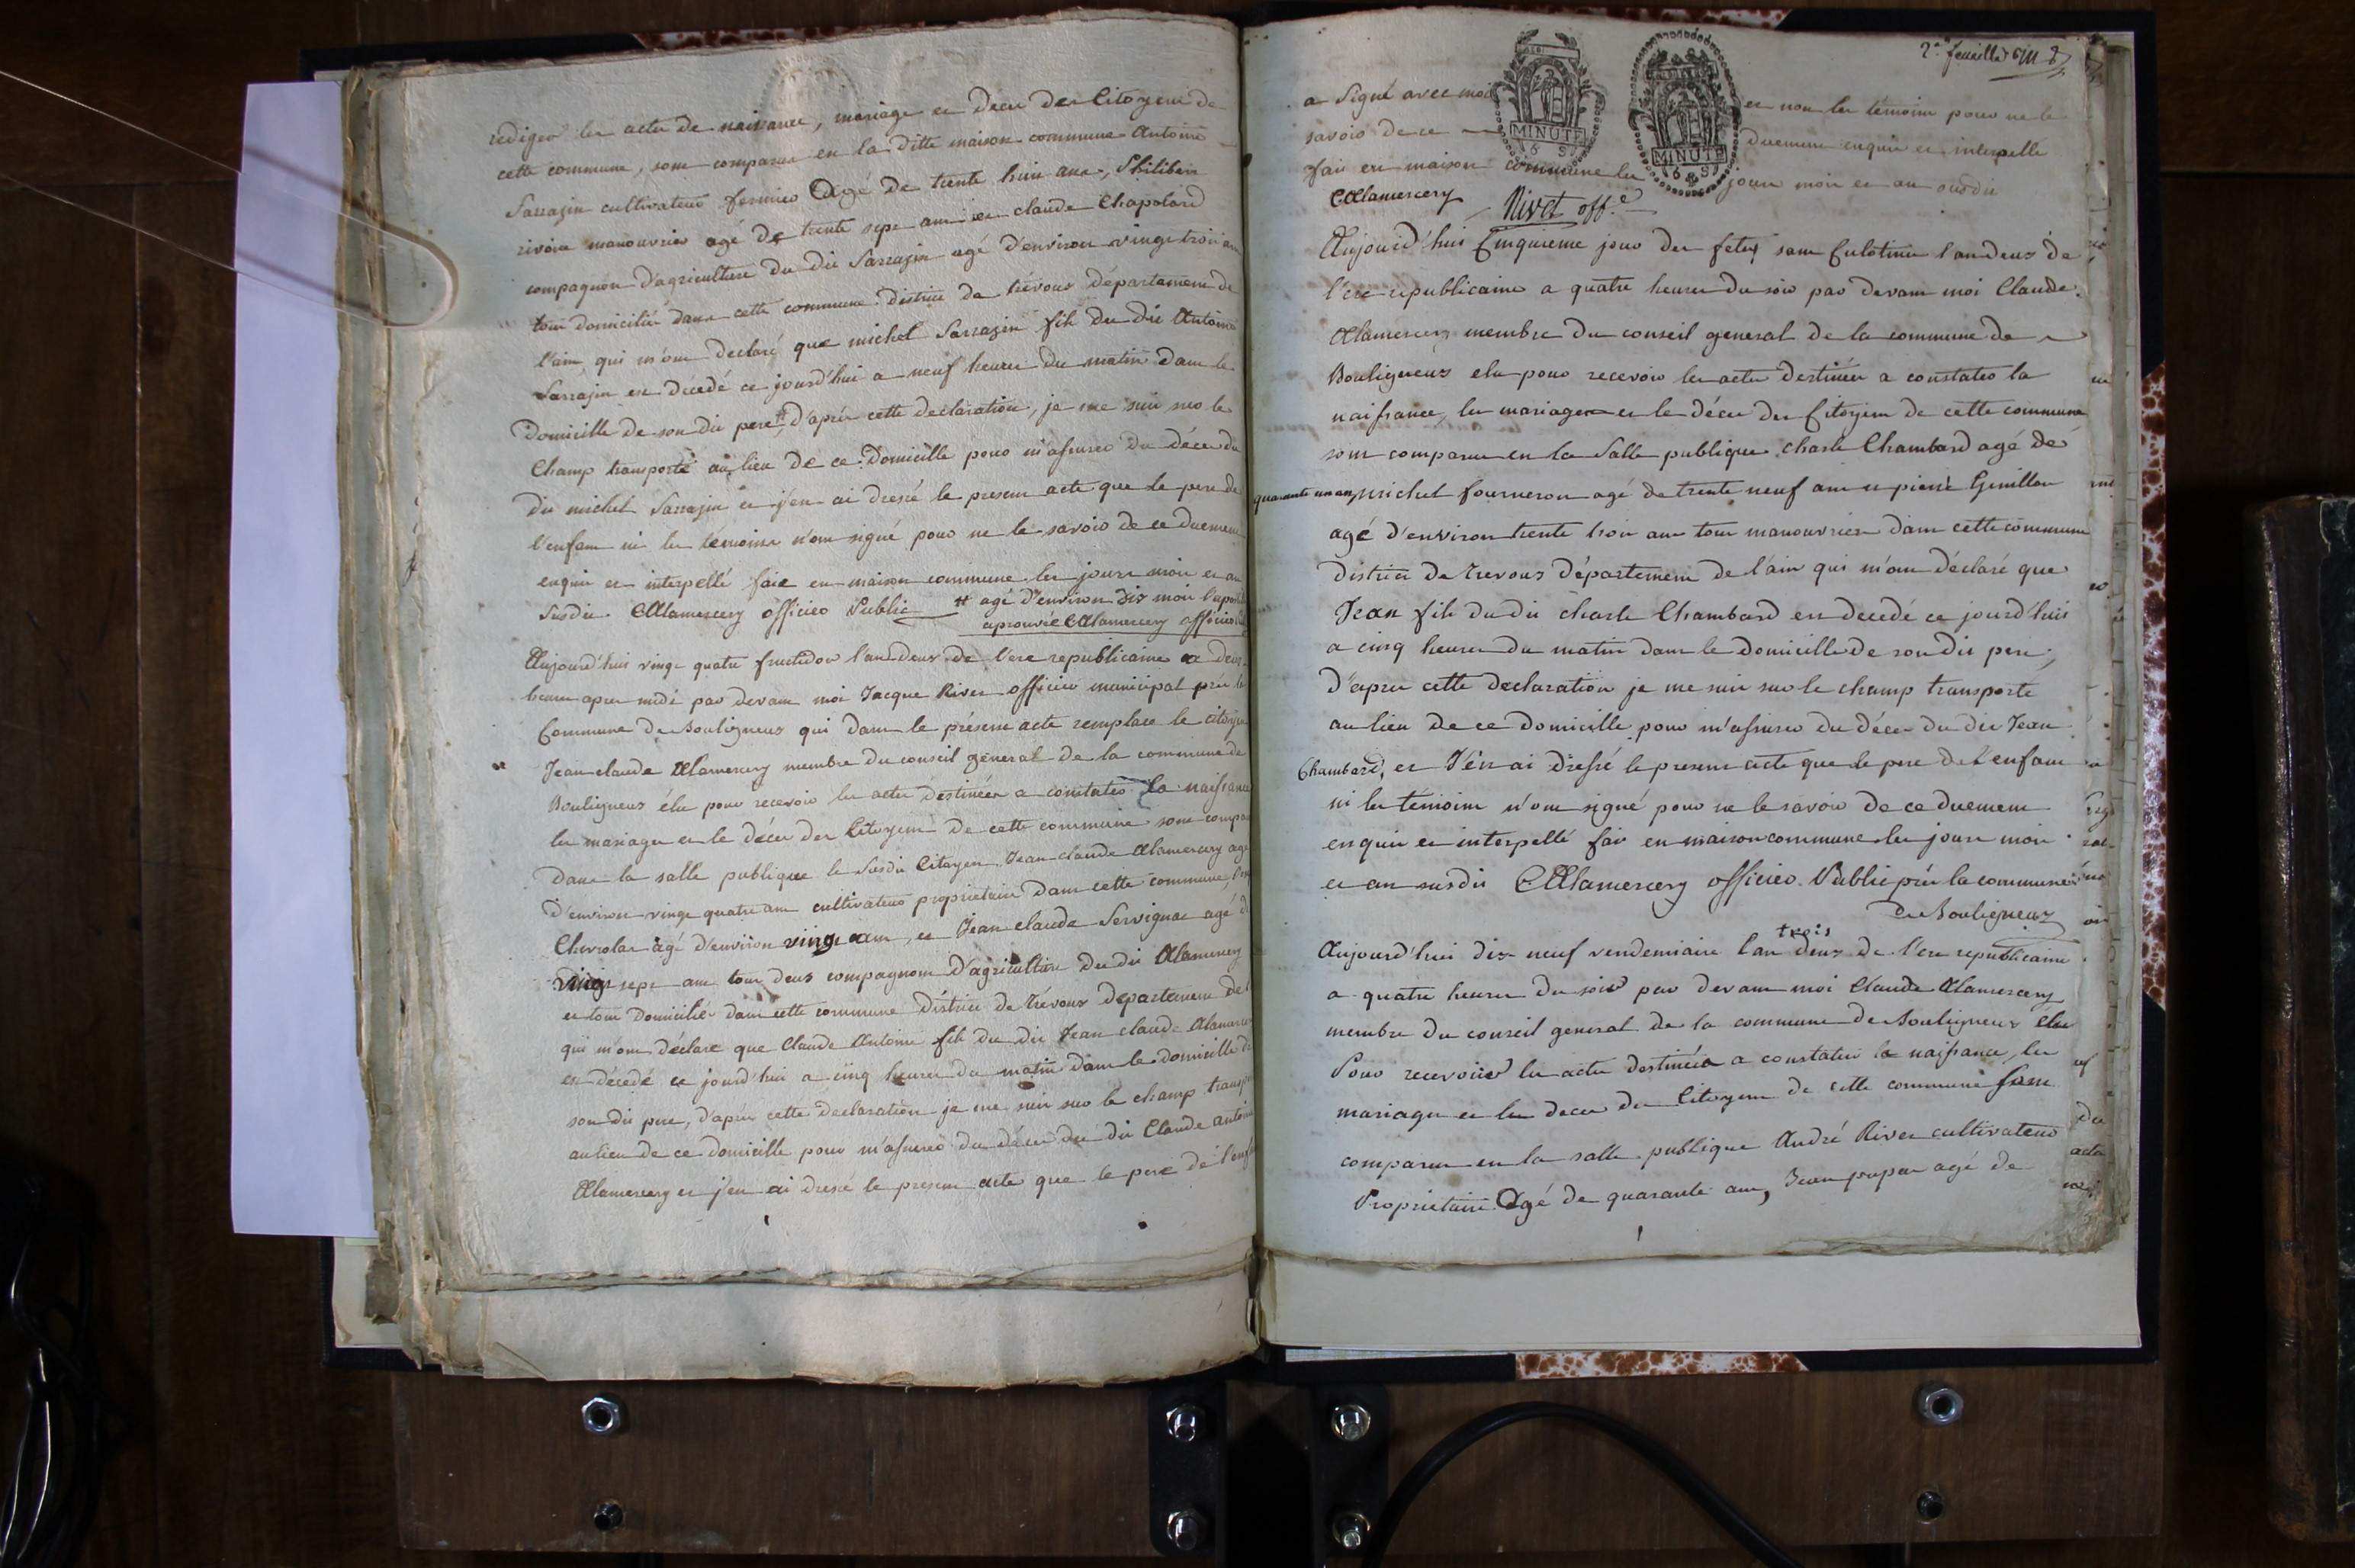 rediger les actes de naissance, mariage et deces des Citoyens de
cette commune, sont comparus en la ditte maison commune Antoine
Sarrazin cultivateur fermier Agé de trente huit ans, Philibert
rivoire manouvrier agé de trente sept ans et claude Chapolard
compagnon d'agriculture du dit Sarrazin agé d'environ vingt trois ans
tous domiciliés dans cette commune district de trévoux département de
l'ain, qui m'ont declaré que michel Sarrazin fils du dit Antoine
Sarrazin est décedé ce jourd'hui a neuf heures du matin dans le
Domicille de son dit pere #, d'après cette declaration, je me suis sur le
Champ transporté au lieu de ce Domicille pour m'assurer du déces du
dit michel Sarrazin et j'en ai dressé le present acte que le pere de
l'enfant ni les témoins n'ont signé pour ne le savoir de ce duement
enquis et interpellé fait en maison commune les jours mois et an
Susdit CAlamercery officier Public # agé d'environ dix mois
aprouvée CAlamercery officier
Aujourd'hui vingt quatre fructidor l'an Deux de l'ere republicaine a deux
heures apres midi par devant moi Jacque Rivet officier municipal près la
Commune de Bouligneux qui dans le présent acte remplace le citoyen
Jean claude Alamercery membre du conseil général de la commune de
Bouligneux élu pour recevoir les actes déstinées a constater la naissance
les mariages et le déces des Citoyens de cette commune sont comparus
dans la salle publique le susdit Citoyen Jean claude Alamercery agé
d'environ vingt quatre ans cultivateur proprietaire dans cette commune,
Chevrolat agé d'environ vingt ans, et Jean claude Servignat agé de
vingt sept ans tous deux compagnons d'agriculture du dit Alamercery
et tous Domiciliés dans cette commune District de trévoux departement de
qui m'ont déclaré que Claude Antoine fils du dit Jean claude Alamercery
est décedé ce jourd'hui a cinq heures du matin dans le domicille de
son dit pere, d'après cette declaration je me suis sur le champ transporté
au lieu de ce domicille pour m'assurer du déces du dit Claude antoine
Alamercery et j'en ai dressé le present acte que le pere de l'enfant
2e feuillet
a signé avec moi et non les témoins pour ne le
savoir de ce duement enquis et interpellé
fait en maison commune les jours mois et an susdit
MINUTE
MINUTE
CAlamercery Rivet off.e
Aujourd'hui Cinquieme jour des fetes sans Culotines l'an deux de
l'ere republicaine a quatre heures du soir par devant moi Claude
Alamercery membre du conseil general de la commune de
Bouligneux elu pour recevoir les actes destinées a constater la
naissance, les mariages et le déces des Citoyens de cette commune
sont comparus en la Salle publique charle Chambard agé de
quarante un ans, michel fourneron agé de trente neuf ans et pierre Genillon
agé d'environ trente trois ans tous manouvriers dans cette commune
District de Trevoux département de l'ain qui m'ont déclaré que
Jean fils du dit charle Chambard est decedé ce jourd'hui
a cinq heures du matin dans le Domicille de son dit pere,
D'apres cette declaration je me suis sur le champ transporté
au lieu de ce domicille pour m'assurer du déces du dit Jean
Chambard, et J'en ai dressé le present acte que le pere de l'enfant
ni les témoins n'ont signé pour ne le savoir de ce duement
enquis et interpellé fait en maison commune les jours mois
et an susdit CAlamercery officier Public près la commune
de Bouligneux
trois
Aujourd'hui dix neuf vendemiaire l'an deux de l'ere republicaine
a quatre heures du soir par devant moi Claude Alamercery
membre du conseil general de la commune de Bouligneux elu
Pour recevoir les actes destinées a constater la naissance, les
mariages et les deces des Citoyens de cette commune sont
comparus en la salle publique André Rivet cultivateur
Proprietaire Agé de quarante ans, Jean agé de